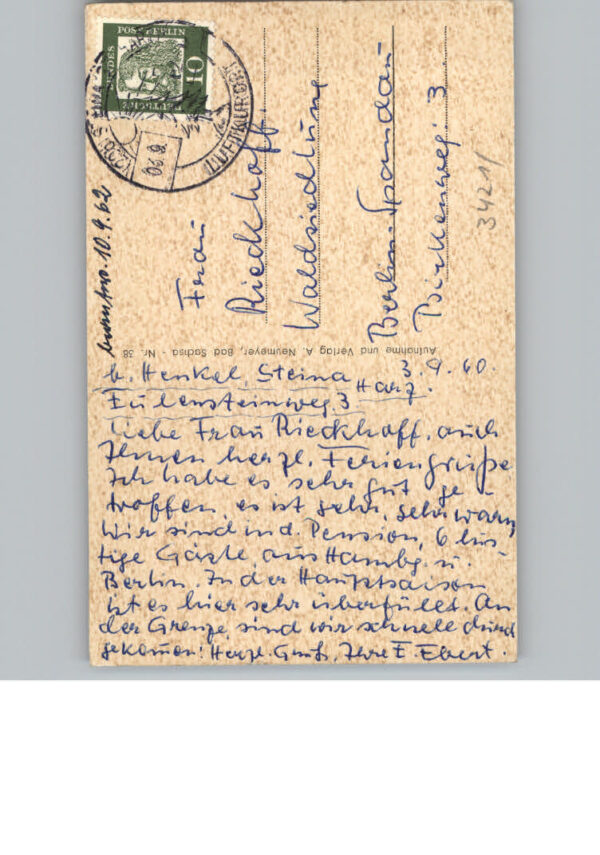 DEUTSCHE BUNDESPOST BERLIN
10
LUFTKURORT
Frau
Rieckhoff.
Waldsiedlung
Berlin-Spandau
Birkenweg. 3
3421/
10.9.62
Aufnahme und Verlag A. Neumeyer, Bad Sachsa - Nr. 38
b. Henkel Steina 3.9.60.
Eulensteinweg. 3 Harz.
Liebe Frau Rieckhoff. auch
Ihnen herzl. Feriengrüße
Ich habe es sehr gut ge-
troffen, es ist sehr, sehr warm
Wir sind in d. Pension, 6 lus-
tige Gäste aus Hambg. u.
Berlin. In der Hauptsaison
ist es hier sehr überfüllt. An
der Grenze sind wir schnell durch
gekommen! Herzl. Gruß, Ihre E. Ebert.